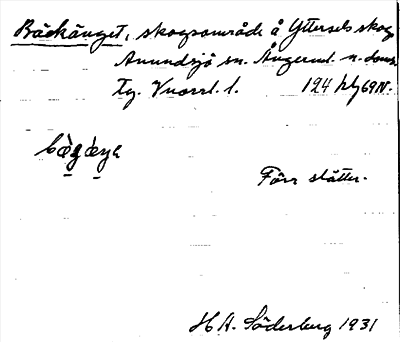 Bäckänget, skogsområde å Yttersels skog
Anundsjö sn. Ångerml. n. doms.
Tg. Vnorrl. l. 124 69N.
Förr slåtter.
H A. Söderberg 1931